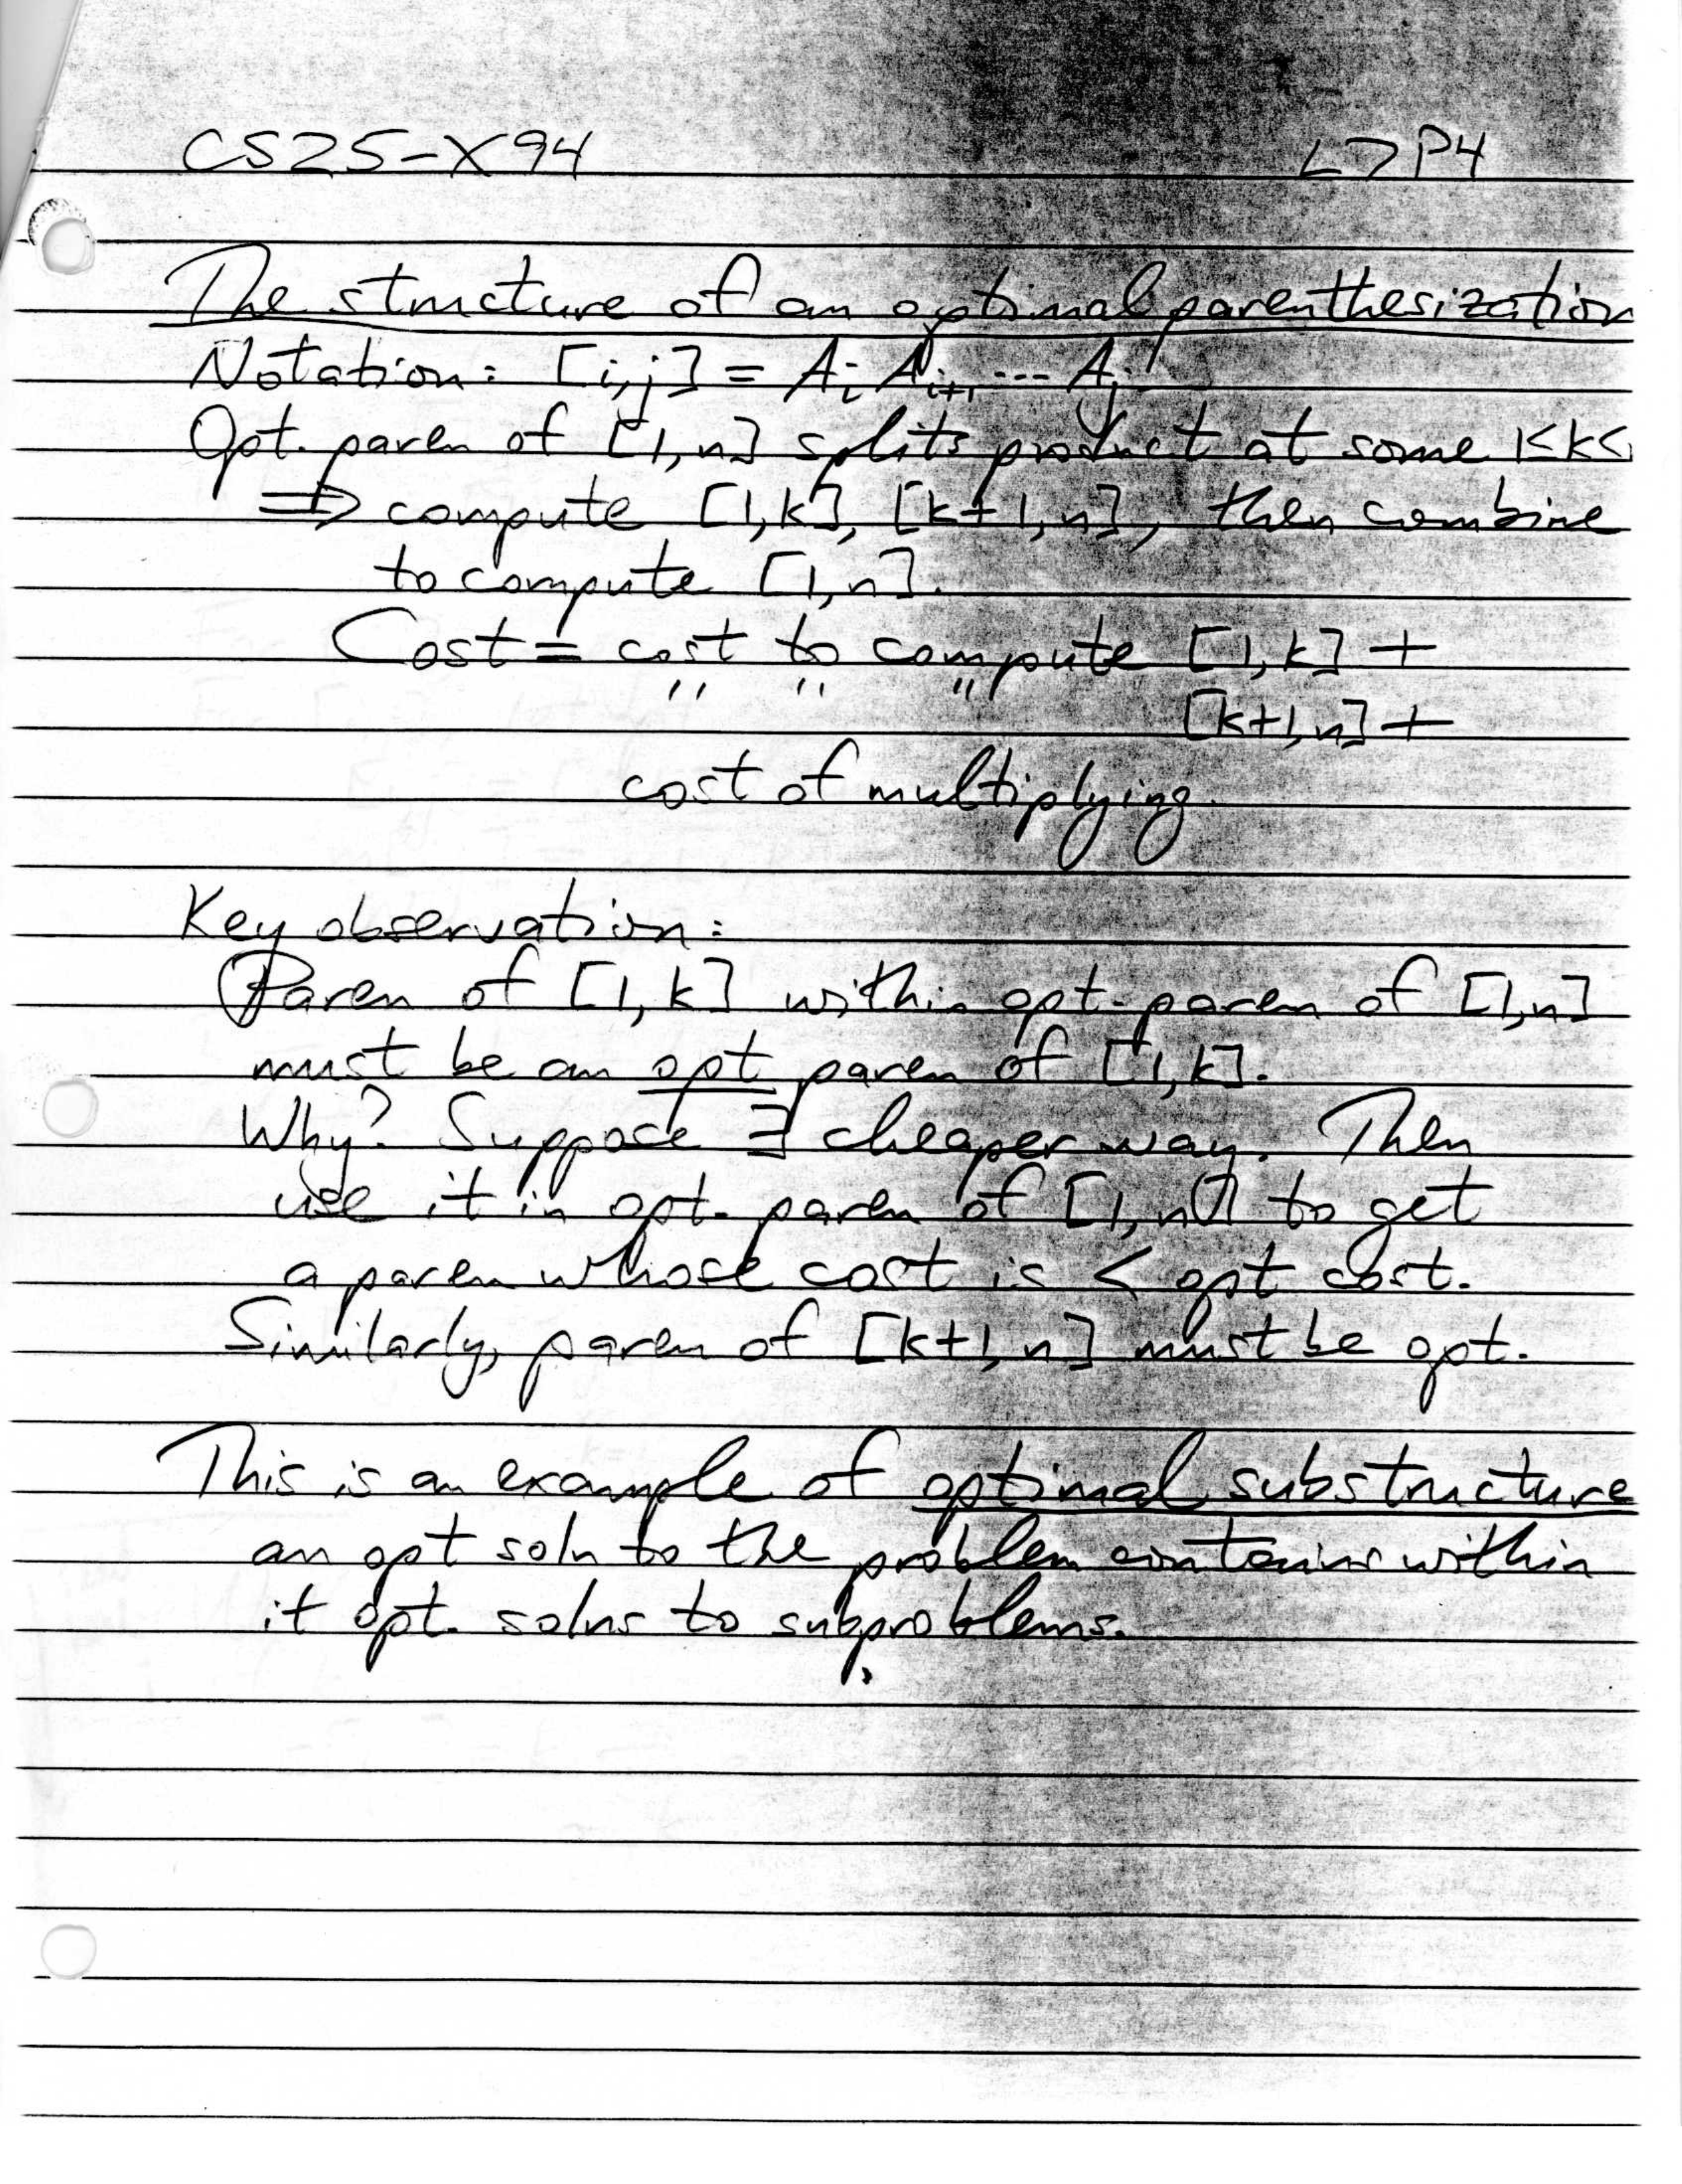 CS25-X94 L7P4
The structure of an optimal parenthesization
Notation: [i,j] = Ai Ai+1 --- Aj
Opt. paren of [1,n] splits product at some 1≤k<
⇒ compute [1,k], [k+1,n], then combine
to compute [1,n].
Cost = cost to compute [1,k] +
" " " [k+1,n] +
cost of multiplying.
Key observation:
Paren of [1,k] within opt. paren of [1,n]
must be an opt paren of [1,k].
Why? Suppose ∃ cheaper way. Then
use it in opt. paren of [1,n] to get
a paren whose cost is < opt cost.
Similarly, paren of [k+1,n] must be opt.
This is an example of optimal substructure
an opt soln to the problem contains within
it opt. solns to subproblems.